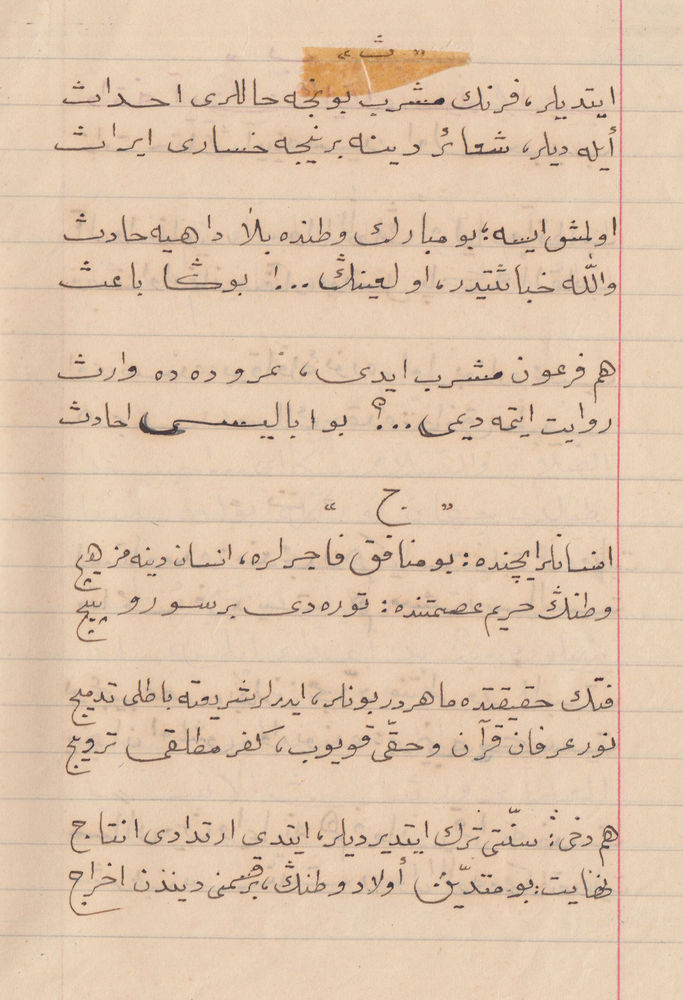 „ ث “
ايتديلر، فرنك مشرب بونجه حاللرى احداث
أيله ديلر، شعائر دينه برنيجه خسارى ايراث
اولمشق ايسه؛ بو مبارك وطنده بلاء داهيه حادث
والله خباثتيدر، او لعينڭ ...! بوڭا باعث
هم فرعون مشرب ايدى، نمروده ده وارث
روايت ايتمه ديمى ...؟ بو اباليسى احادث
„ ج “
انسانلر ايچنده: بو منافق فاجرلره، انسان دينه مز هيچ
وطنڭ حريم عصمتنده: توره دى بر سورو پيچ
فتك حقيقتده ماهردر بونلر، ايدرلر شريعته باطلى تدميج
نور عرفان قرآن و حقّى قويوب، كفر مطلقى ترويج
هم دخى: سنّتى ترك ايتديرديلر، ايتدى ارتدادى انتاج
نهايت: بو متديّن أولاد وطنڭ، بر قسمنى ديندن اخراج